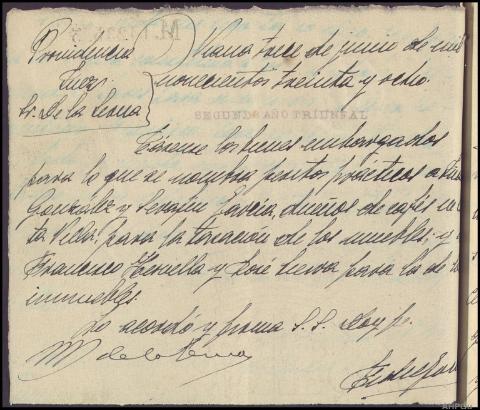 Providencia
Juez
Sr. de la Serna
Viana trece de junio de mil
novecientos treinta y ocho.
SEGUNDO AÑO TRIUNFAL
Tásense los bienes embargados
para lo que se nombra peritos prácticos a
González y Serafín García, dueños de cafés
ta Villa, para la tasación de los muebles; y
Francisco y José para los de
inmuebles.
Lo acordó y firma S.S. doy fe.
M de la Serna
AHPOU